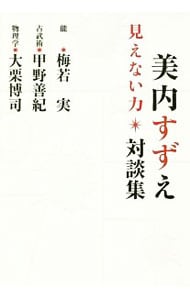 美内すずえ
見えない力＊対談集
能＊梅若 実
古武術＊甲野善紀
物理学＊大栗博司